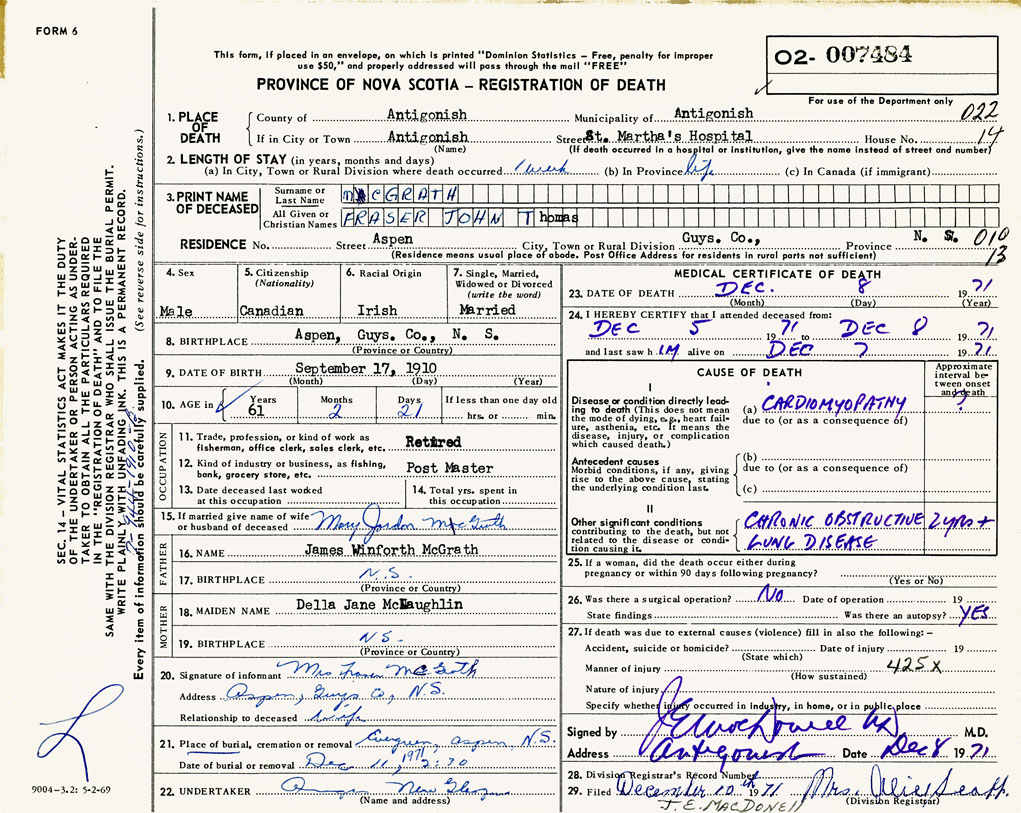 FORM 6
This form, if placed in an envelope, on which is printed "Dominion Statistics – Free, penalty for improper
use $50," and properly addressed will pass through the mail "FREE"
PROVINCE OF NOVA SCOTIA – REGISTRATION OF DEATH
02- 007484
For use of the Department only
022
14
1. PLACE OF DEATH
County of Antigonish Municipality of Antigonish
If in City or Town Antigonish Street St. Martha's Hospital House No.
(Name) (If death occurred in a hospital or institution, give the name instead of street and number)
2. LENGTH OF STAY (in years, months and days)
(a) In City, Town or Rural Division where death occurred 1 week (b) In Province life (c) In Canada (if immigrant)
3. PRINT NAME OF DECEASED
Surname or Last Name McGRATH
All Given or Christian Names FRASER JOHN Thomas
RESIDENCE No. Street Aspen City, Town or Rural Division Guys. Co., Province N. S. 010
(Residence means usual place of abode. Post Office Address for residents in rural parts not sufficient) 13
4. Sex
Male
5. Citizenship
(Nationality)
Canadian
6. Racial Origin
Irish
7. Single, Married,
Widowed or Divorced
(write the word)
Married
8. BIRTHPLACE Aspen, Guys. Co., N. S.
(Province or Country)
9. DATE OF BIRTH September 17, 1910
(Month) (Day) (Year)
10. AGE in Years 61 Months 2 Days 21 If less than one day old
hrs. or min.
OCCUPATION
11. Trade, profession, or kind of work as
fisherman, office clerk, sales clerk, etc. Retired
12. Kind of industry or business, as fishing,
bank, grocery store, etc. Post Master
13. Date deceased last worked
at this occupation
14. Total yrs. spent in
this occupation
15. If married give name of wife
or husband of deceased Mary Jordon McGrath
FATHER
16. NAME James Winforth McGrath
17. BIRTHPLACE N.S.
(Province or Country)
MOTHER
18. MAIDEN NAME Della Jane McLaughlin
19. BIRTHPLACE N.S.
(Province or Country)
20. Signature of informant Mrs Fraser McGrath
Address Aspen, Guys Co, N.S.
Relationship to deceased Wife
21. Place of burial, cremation or removal Evergreen, Aspen, N.S.
Date of burial or removal Dec 11, 1971 2:30
22. UNDERTAKER New Glasgow
(Name and address)
MEDICAL CERTIFICATE OF DEATH
23. DATE OF DEATH DEC. 8 1971
(Month) (Day) (Year)
24. I HEREBY CERTIFY that I attended deceased from:
DEC 5 1971 to DEC 8 1971
and last saw him alive on DEC 7 1971
CAUSE OF DEATH
Approximate
interval be-
tween onset
and death
I
Disease or condition directly lead-
ing to death (This does not mean
the mode of dying, e.g., heart fail-
ure, asthenia, etc. It means the
disease, injury, or complication
which caused death.)
(a) CARDIOMYOPATHY ?
due to (or as a consequence of)
Antecedent causes
Morbid conditions, if any, giving
rise to the above cause, stating
the underlying condition last.
(b)
due to (or as a consequence of)
(c)
II
Other significant conditions
contributing to the death, but not
related to the disease or condi-
tion causing it.
CHRONIC OBSTRUCTIVE 2 yrs +
LUNG DISEASE
25. If a woman, did the death occur either during
pregnancy or within 90 days following pregnancy?
(Yes or No)
26. Was there a surgical operation? NO Date of operation 19
State findings Was there an autopsy? YES
27. If death was due to external causes (violence) fill in also the following: –
Accident, suicide or homicide? Date of injury 19
(State which)
Manner of injury 425X
(How sustained)
Nature of injury
Specify whether injury occurred in industry, in home, or in public place
Signed by J E MacDonell MD M.D.
Address Antigonish Date Dec 8 1971
28. Division Registrar's Record Number
29. Filed December 10th 1971 Mrs.
(Division Registrar)
J. E. MACDONELL
SEC. 14 – VITAL STATISTICS ACT MAKES IT THE DUTY
OF THE UNDERTAKER OR PERSON ACTING AS UNDER-
TAKER TO OBTAIN ALL THE PARTICULARS REQUIRED
IN THE "REGISTRATION OF DEATH" AND TO FILE THE
SAME WITH THE DIVISION REGISTRAR WHO SHALL ISSUE THE BURIAL PERMIT.
WRITE PLAINLY WITH UNFADING INK. THIS IS A PERMANENT RECORD.
Every item of information should be carefully supplied. (See reverse side for instructions.)
9004-3.2: 5-2-69